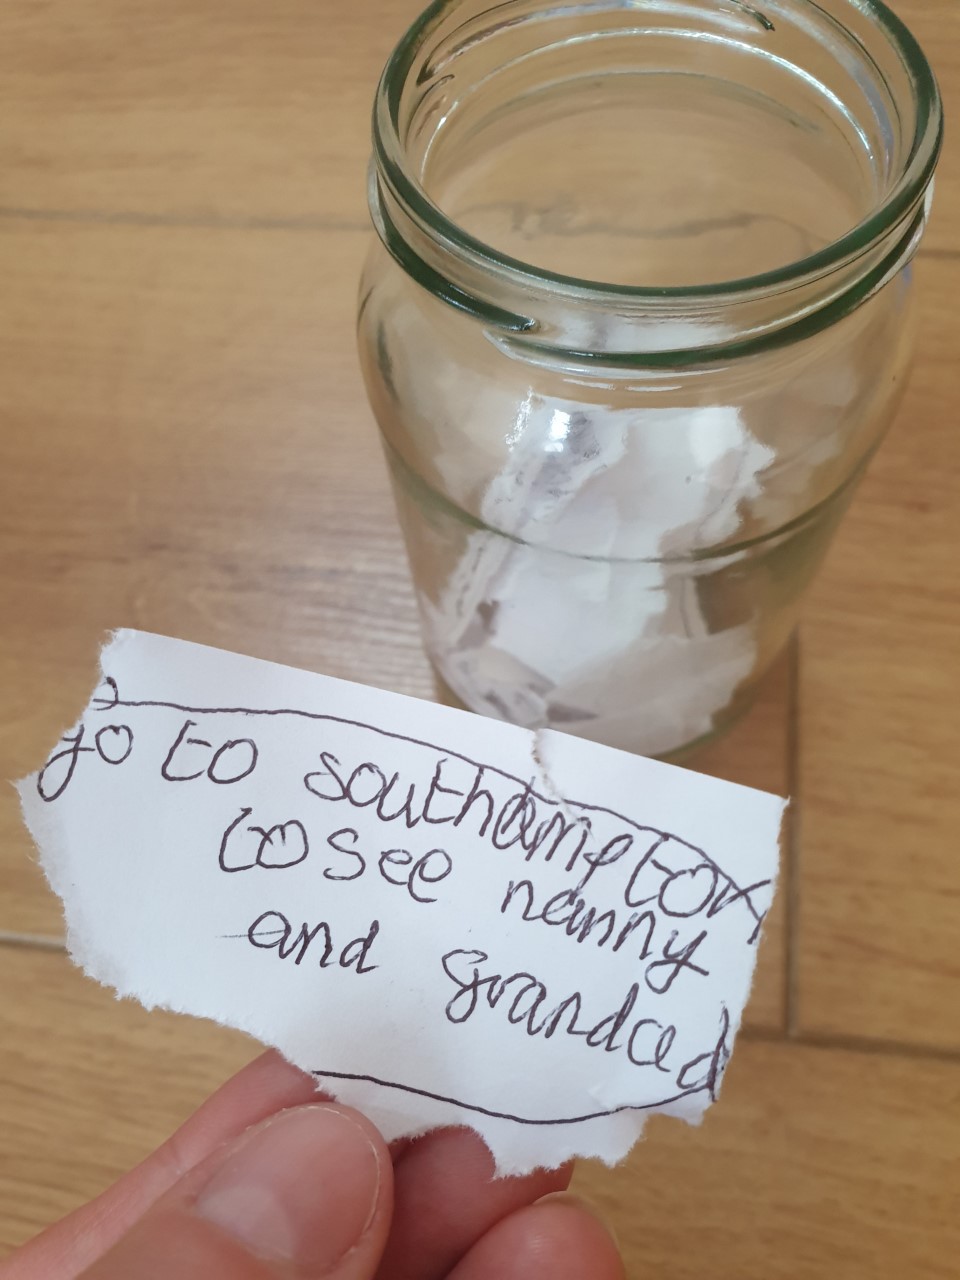 go to southampton
to see nanny
and grandad